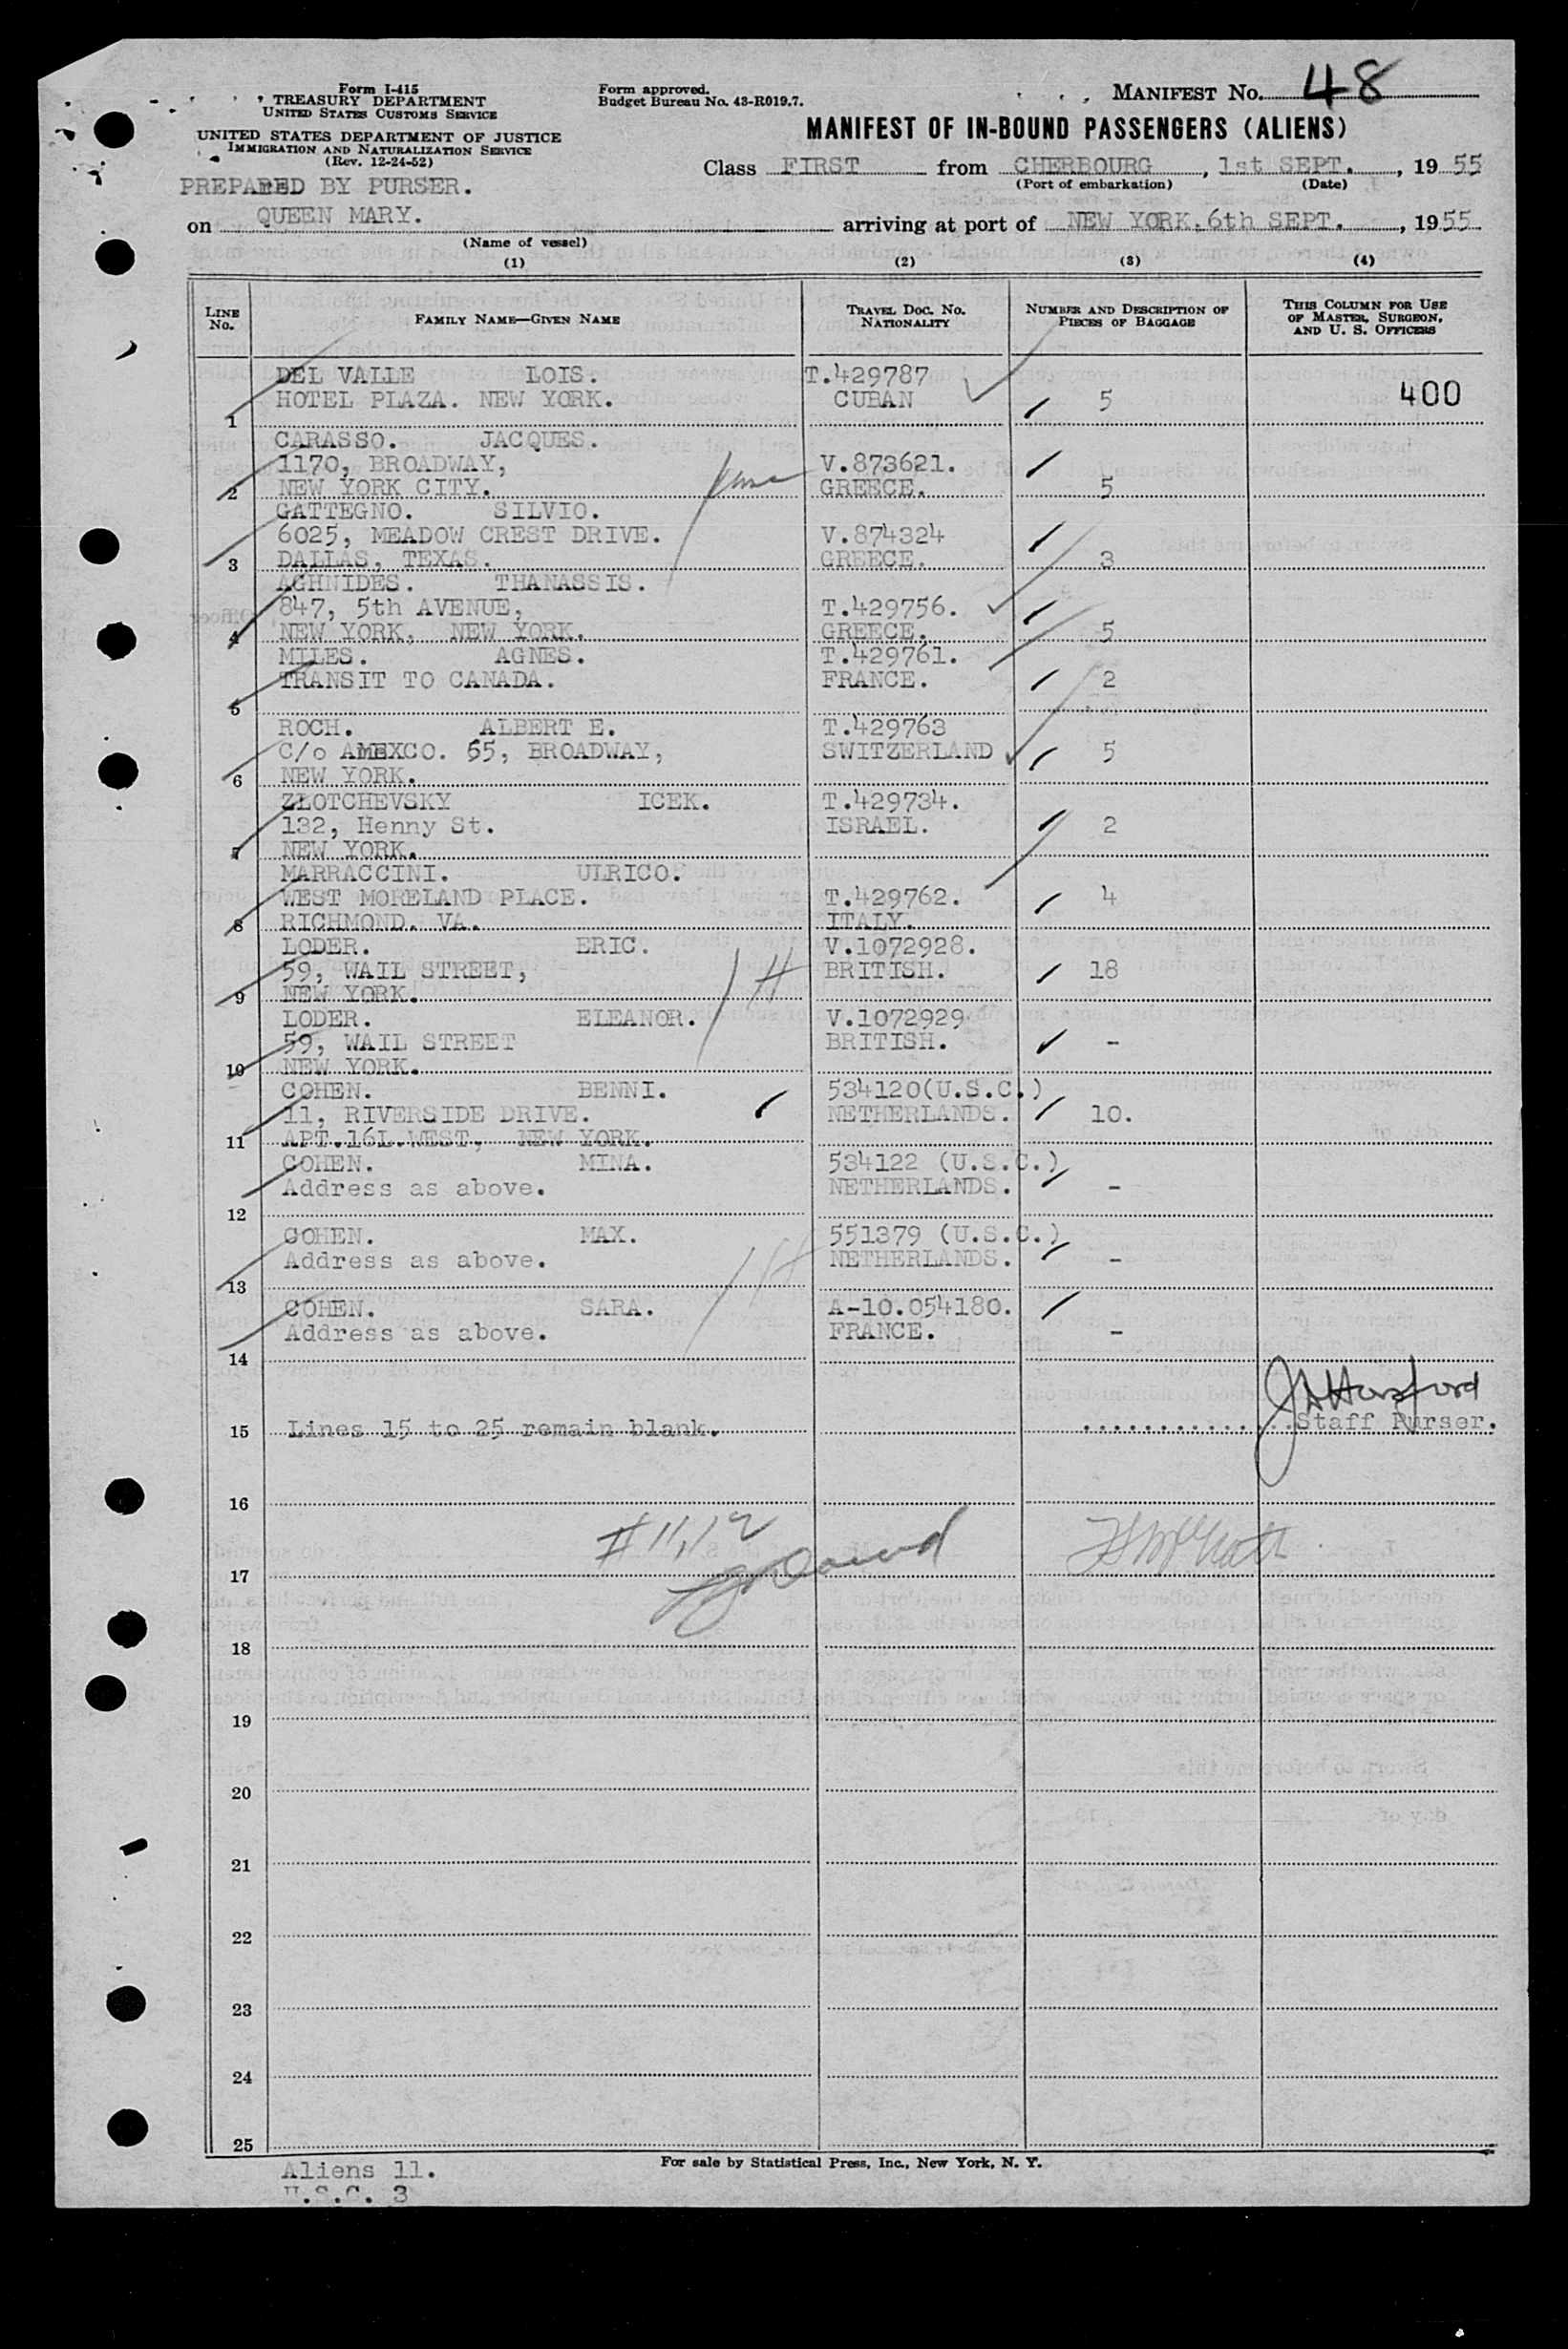 Form I-415
TREASURY DEPARTMENT
UNITED STATES CUSTOMS SERVICE
UNITED STATES DEPARTMENT OF JUSTICE
IMMIGRATION AND NATURALIZATION SERVICE
(Rev. 12-24-52)
PREPARED BY PURSER.
Form approved.
Budget Bureau No. 43-R019.7.
MANIFEST No. 48
MANIFEST OF IN-BOUND PASSENGERS (ALIENS)
Class FIRST from CHERBOURG, 1st SEPT., 1955
(Port of embarkation) (Date)
on QUEEN MARY. arriving at port of NEW YORK. 6th SEPT., 1955
(Name of vessel)
(1) (2) (3) (4)
LINE No. FAMILY NAME—GIVEN NAME TRAVEL DOC. No. NATIONALITY NUMBER AND DESCRIPTION OF PIECES OF BAGGAGE THIS COLUMN FOR USE OF MASTER, SURGEON, AND U. S. OFFICERS
DEL VALLE LOIS. T.429787
HOTEL PLAZA. NEW YORK. CUBAN 5 400
1
CARASSO. JACQUES.
1170, BROADWAY, V.873621.
2 NEW YORK CITY. GREECE. 5
GATTEGNO. SILVIO.
6025, MEADOW CREST DRIVE. V.874324
3 DALLAS, TEXAS. GREECE. 3
AGHNIDES. THANASSIS.
847, 5th AVENUE, T.429756.
4 NEW YORK, NEW YORK. GREECE. 5
MILES. AGNES. T.429761.
TRANSIT TO CANADA. FRANCE. 2
5
ROCH. ALBERT E. T.429763
C/o AMEXCO. 65, BROADWAY, SWITZERLAND 5
6 NEW YORK.
ZLOTCHEVSKY ICEK. T.429734.
132, Henny St. ISRAEL. 2
7 NEW YORK.
MARRACCINI. ULRICO.
WEST MORELAND PLACE. T.429762. 4
8 RICHMOND. VA. ITALY.
LODER. ERIC. V.1072928.
59, WAIL STREET, BRITISH. 18
9 NEW YORK.
LODER. ELEANOR. V.1072929
59, WAIL STREET BRITISH. -
10 NEW YORK.
COHEN. BENNI. 534120(U.S.C.)
11, RIVERSIDE DRIVE. NETHERLANDS. 10.
11 APT.16L.WEST, NEW YORK.
COHEN. MINA. 534122 (U.S.C.)
Address as above. NETHERLANDS. -
12
COHEN. MAX. 551379 (U.S.C.)
Address as above. NETHERLANDS. -
13
COHEN. SARA. A-10.054180.
Address as above. FRANCE. -
14
15 Lines 15 to 25 remain blank. Staff Purser.
16
# 11,12
17
18
19
20
21
22
23
24
25
For sale by Statistical Press, Inc., New York, N. Y.
Aliens 11.
U.S.C. 3